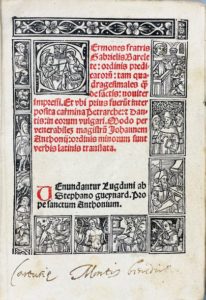 Sermones fratris
Gabrielis Barele
te: ordinis predi
catorũ: tam qua
dragesimales q̃
de sactis: nouiter
impressi. Et vbi prius fuerũt inter
posita carmina Petrarche: ⁊ Dan
tis: in eorum vulgari. Modo per
venerabilez magistrũ Johannem
Anthonij: ordinis minorum sunt
verbis latinis translata.
Uenundantur Lugduni ab
Stephano gueynard. Pro
pe sanctum Anthonium.